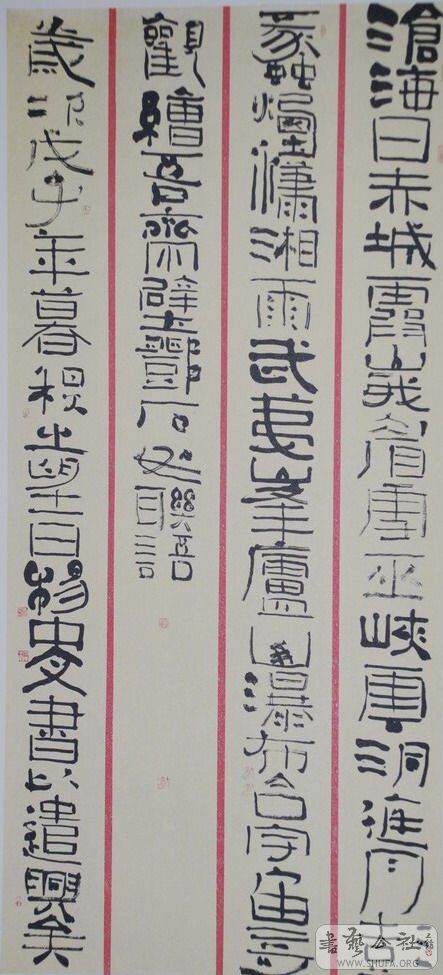 滄海日赤城霞峩眉雪巫峽雲洞庭月彭
蠡煙瀟湘雨武夷峯廬山瀑布合宇宙奇
觀繪吾齋壁鄧石如聯語
歲次戊子年暮秋望日書以遣興矣
書藝公社
WWW.SHUFA.ORG